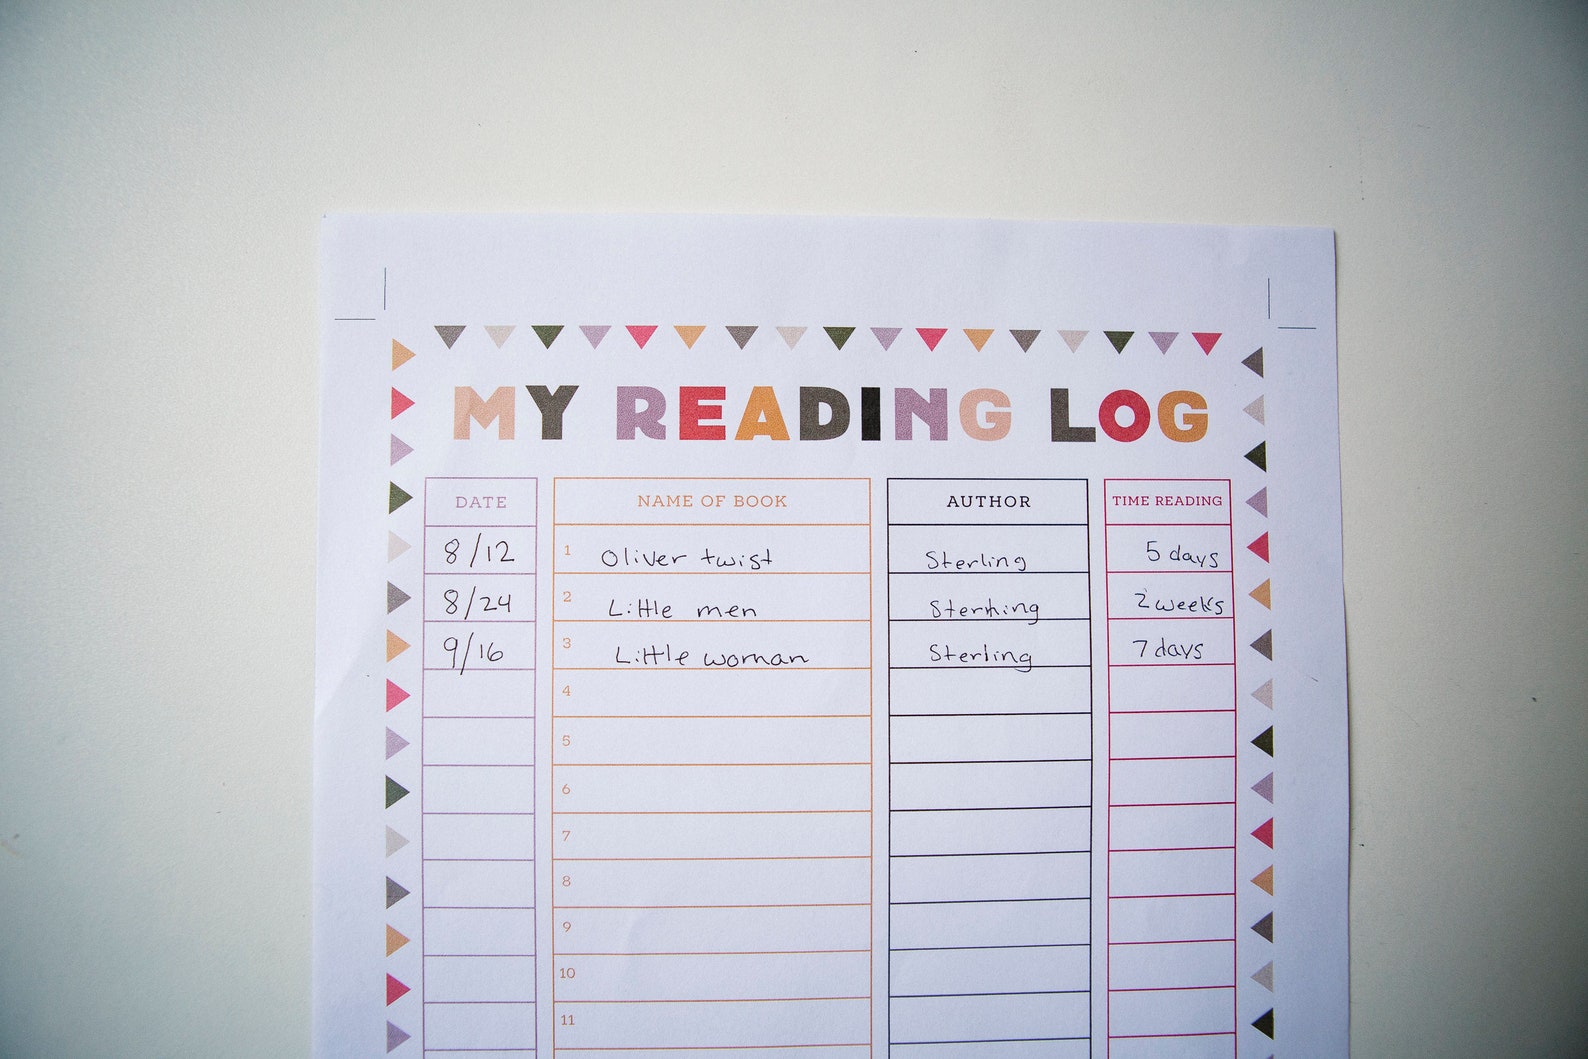 MY READING LOG
DATE NAME OF BOOK AUTHOR TIME READING
8/12 1 Oliver twist Sterling 5 days
8/24 2 Little men Sterhing 2 weeks
9/16 3 Little woman Sterling 7 days
4
5
6
7
8
9
10
11